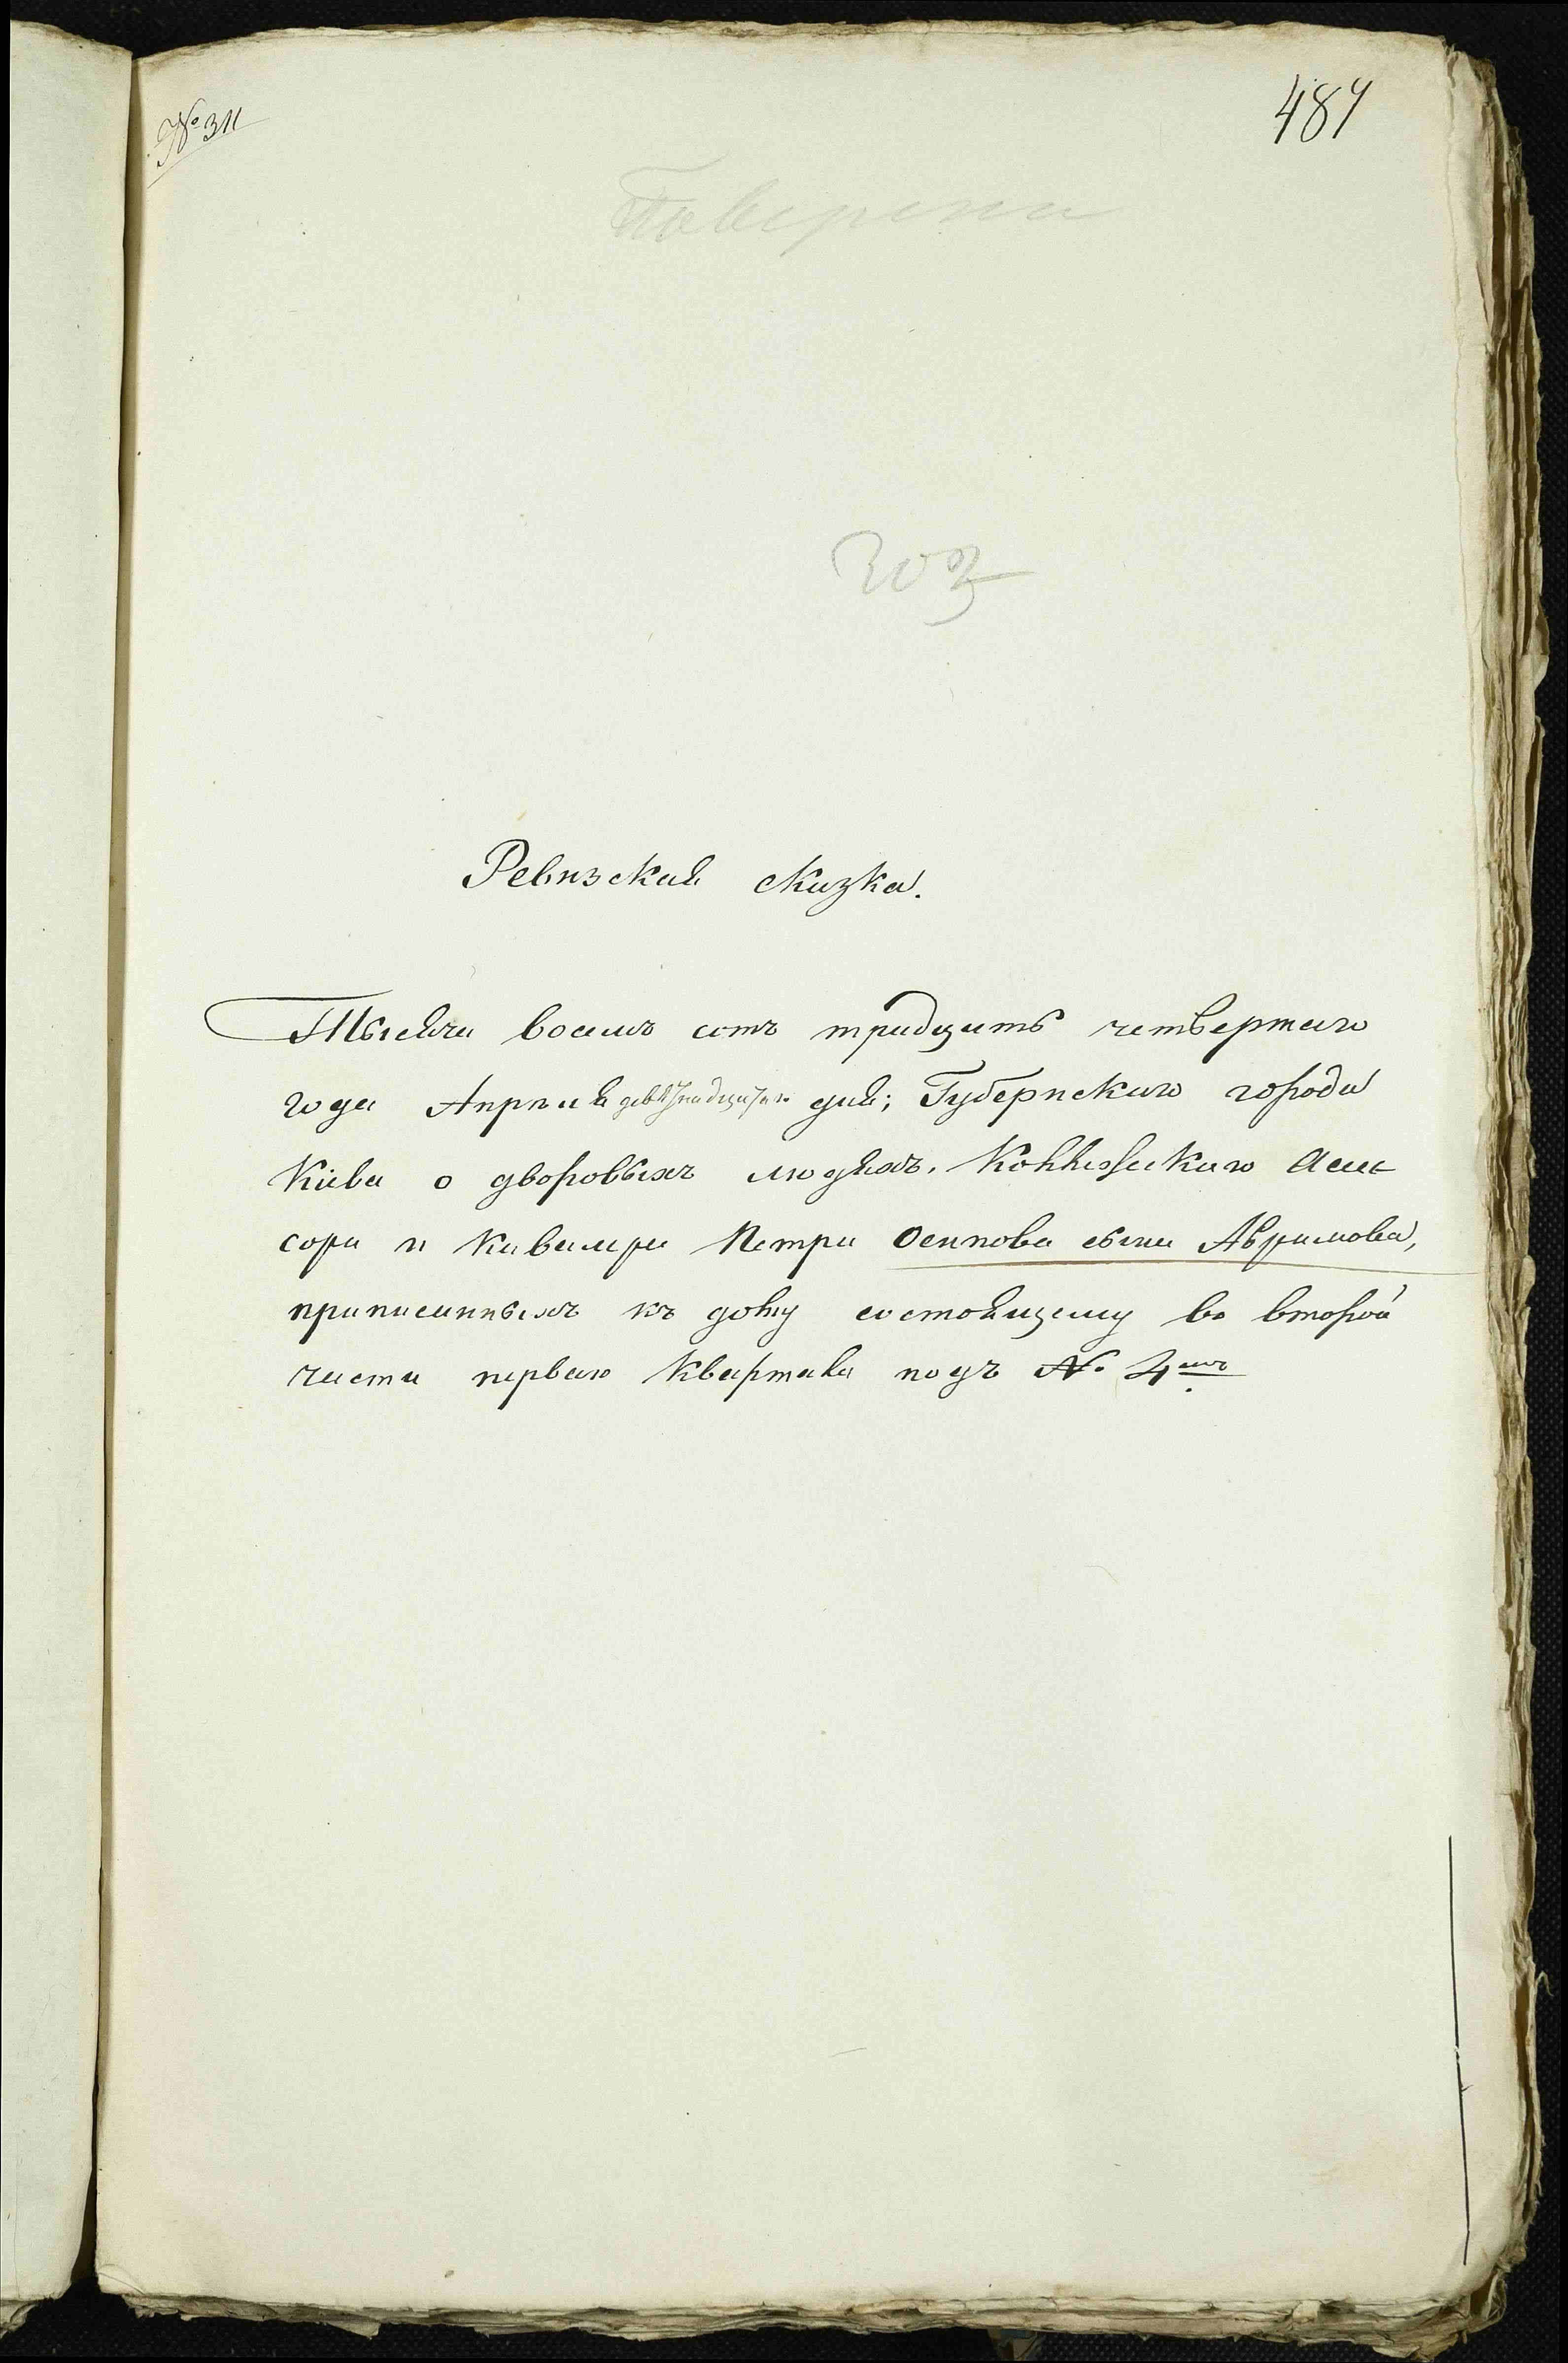 № 311
484
Поверена
303
Ревизская сказка.
Тысяча восемь сотъ тридцать четвертаго
года Апреля девятнадцатаго дня; Губернскаго города
Кіева о дворовыхъ людяхъ. Коллежскаго Асес
сора и Кавалера Петра Осипова сына Аврамова,
приписанныхъ къ дому состоящему во второй
части перваго Квартала подъ № 4мъ